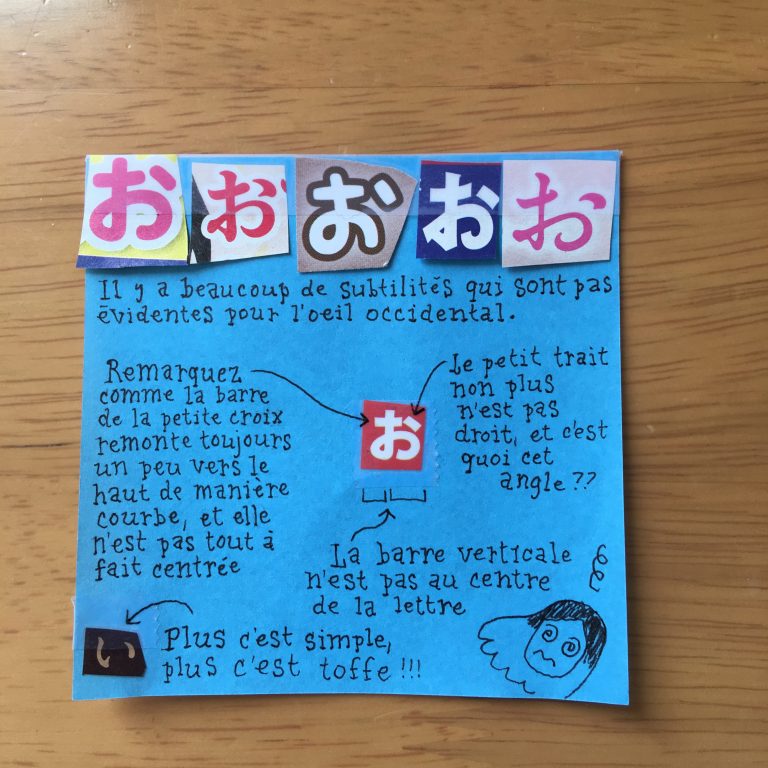 おおおおお
Il y a beaucoup de subtilités qui sont pas
évidentes pour l'oeil occidental.
Remarquez
comme la barre
de la petite croix
remonte toujours
un peu vers le
haut de manière
courbe, et elle
n'est pas tout à
fait centrée
お
Le petit trait
non plus
n'est pas
droit, et c'est
quoi cet
angle ??
La barre verticale
n'est pas au centre
de la lettre
い
Plus c'est simple,
plus c'est toffe !!!